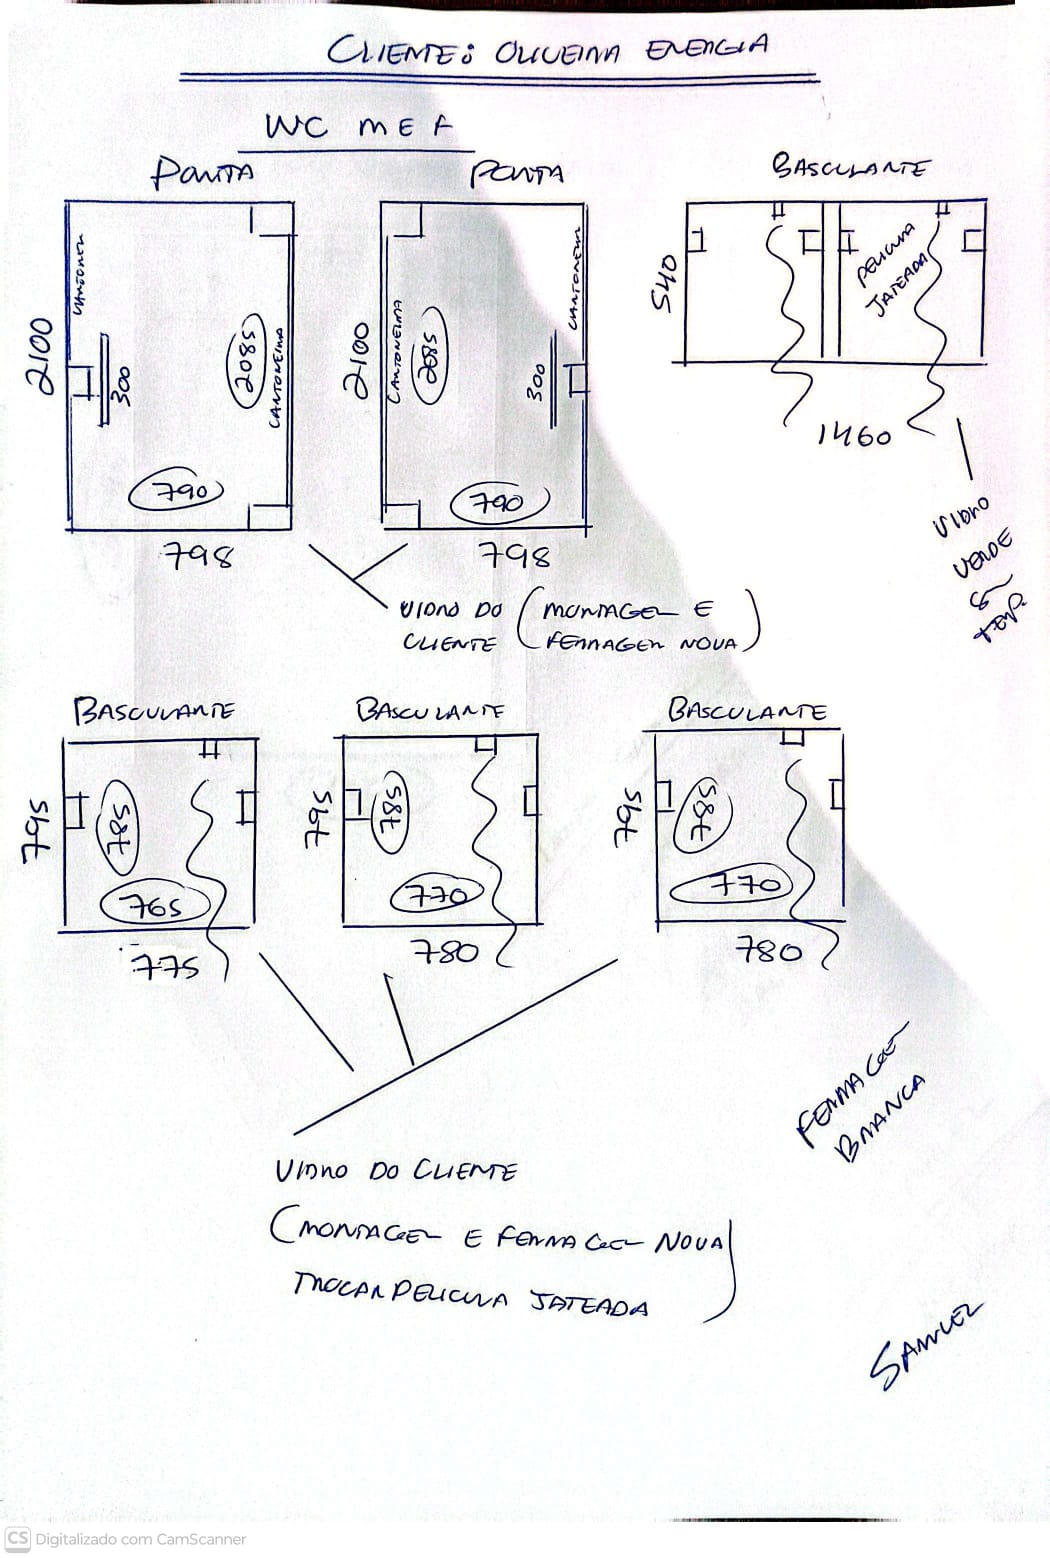 CLIENTE: OLIVEIRA ENERGIA
WC M E F
PORTA
PORTA
BASCULANTE
CANTONEIRA
2100
300
2085
CANTONEIRA
790
798
2100
CANTONEIRA
2085
300
CANTONEIRA
790
798
540
PELICULA
JATEADA
1460
VIDRO
VERDE
8
TEMP.
VIDRO DO
CLIENTE
(MONTAGEM E
FERRAGEM NOVA)
BASCULANTE
BASCULANTE
BASCULANTE
795
785
765
775
795
785
770
780
795
785
770
780
VIDRO DO CLIENTE
(MONTAGEM E FERRAGEM NOVA
TROCAR PELICULA JATEADA)
FERRAGEM
BRANCA
SAMUEL
CS Digitalizado com CamScanner